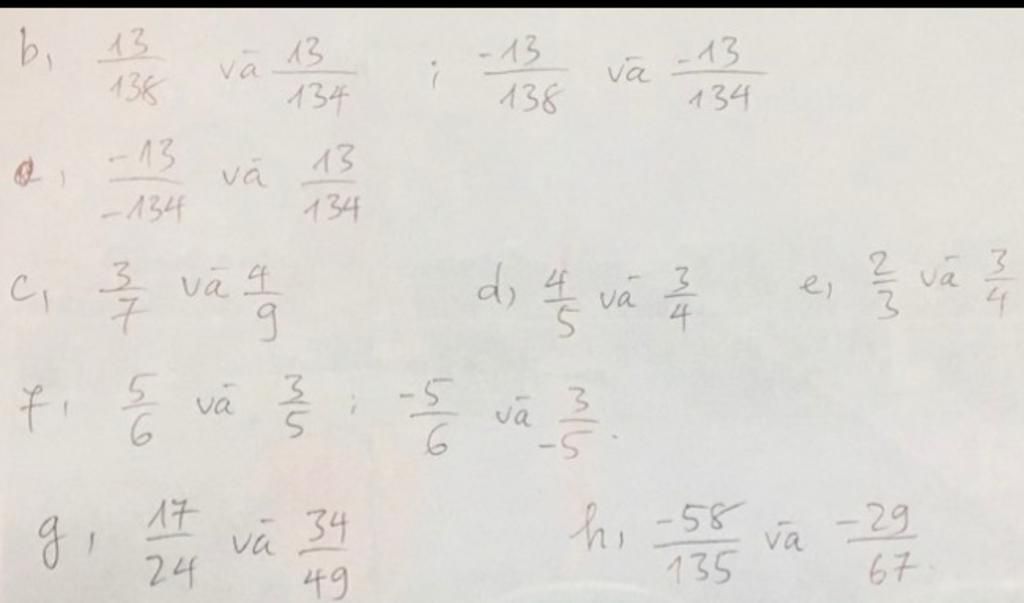 b, 13/138 và 13/134 ; -13/138 và -13/134
a, -13/-134 và 13/134
c, 3/7 và 4/9 d, 4/5 và 3/4 e, 2/3 và 3/4
f, 5/6 và 3/5 ; -5/6 và 3/-5.
g, 17/24 và 34/49 h, -58/135 và -29/67.